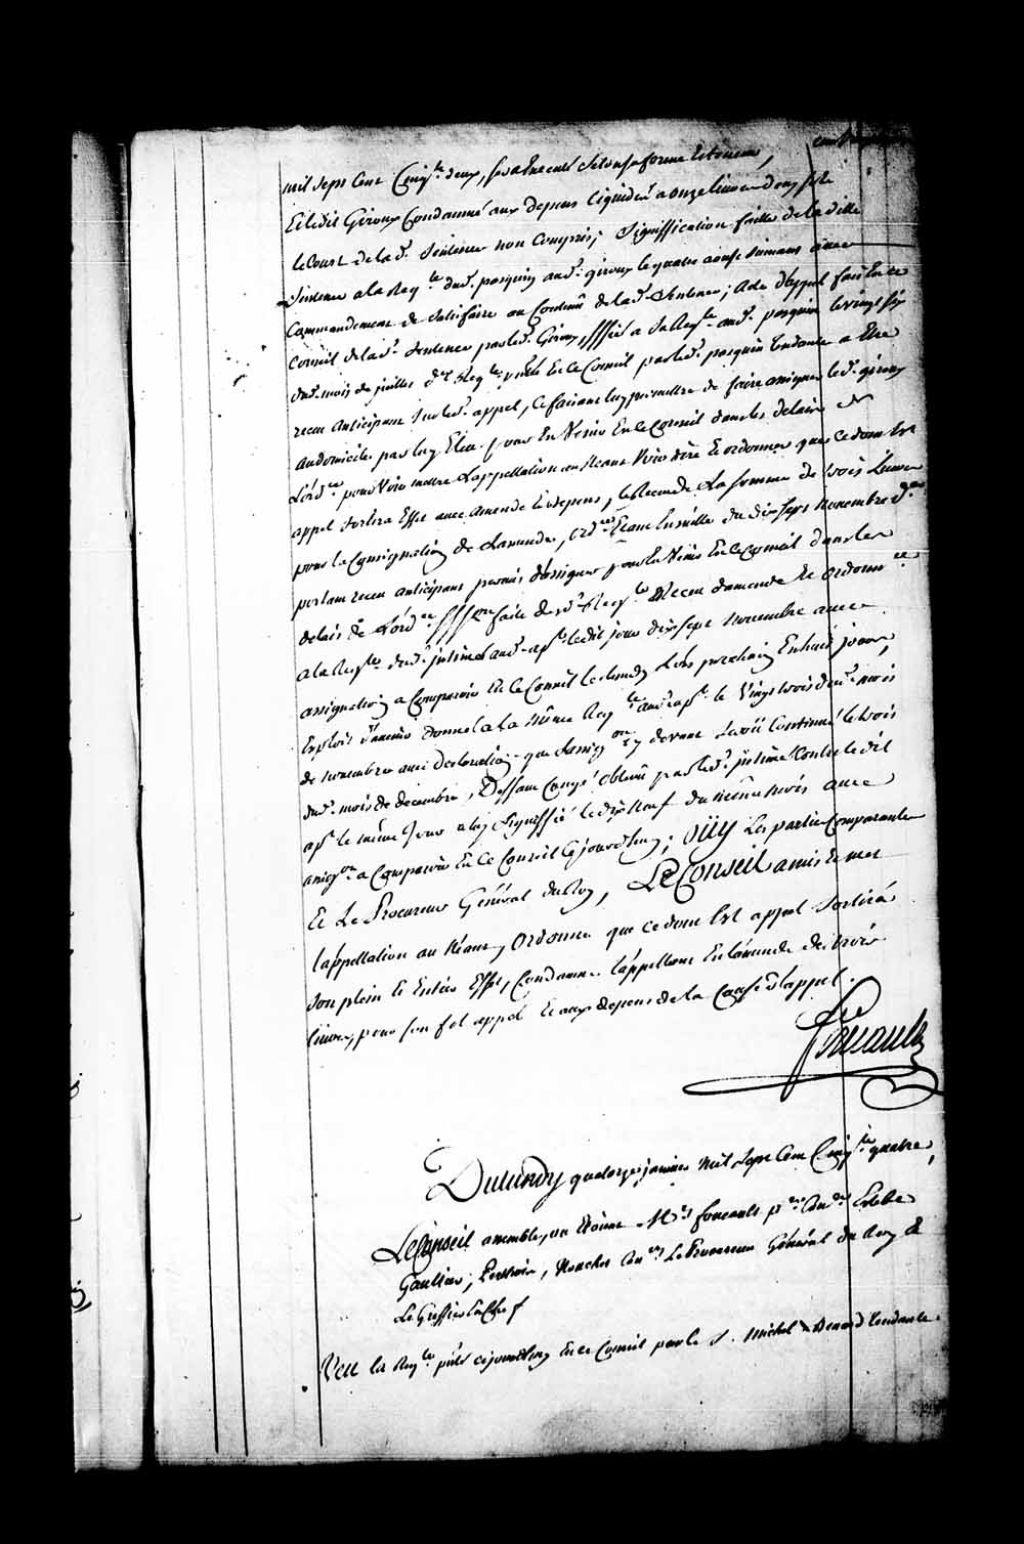 mil sept Cent Cinq.te deux, sera Executé selon sa forme Et teneur,
Et ledit Giroux Condamné aux depens liquidés a onze livres douze sols
le Cout de lad.e Sentence non Compris; Signiffication faitte de lad.e
Sentence a la Req.te dud. pasquin aud. giroux le quatre aoust suivant avec
Commandement de satisfaire au Contenu de lad.e Sentence; acte d'appel fait En ce
Conseil de lad.e Sentence par led. Giroux, signiffié a sa Req.te aud. pasquin le vingt six
dud. mois de juillet Req.te pntée En ce Conseil par led. pasquin tendante a Etre
receu anticipant sur led. appel, Ce faisant luy permettre de faire assigner led. giroux
au domicile par luy Elu pour En Venir En ce Conseil dans les delais de
L'ord.ce pour Voir mettre L'appellation au Neant Voir dire Et ordonner que ce dont Est
appel sortira Effet avec amende Et depens, la somme de trois Livres
pour la Consignation de L'amende, ord.ce Etant Ensuitte du dix sept novembre d.er
portant receu anticipant permis d'assigner pour En Venir En ce Conseil dans les
delais de L'ord.ce faite de lad. Req.te Receu d'amende Et ordonn.ce
a la Req.te dud. intimé aud. ap.t ledit jour dix sept novembre avec
assignation a Comparoir En ce Conseil le lundy Lors prochain En huit jours,
Exploit d'avenir donné a la même Req.te aud. ap.t le Vingt trois dud. mois
de novembre avec declaration que L'assig.on y devant Seroit Continué le trois
dud. mois de decembre, Deffaut Congé obtenu par led. intimé Contre ledit
ap.t le même jour a luy Signiffié le dix Neuf du même mois avec
assig.on a Comparoir En ce Conseil Cejourd'huy; Oüy Les parties Comparantes
Et Le Procureur Général du Roy, Le Conseil a mis Et met
L'appellation au Néant, Ordonne que ce dont Est appel Sortira
Son plein Et Entier Effet, Condamne l'appellant En L'amende de trois
livres, pour son fol appel Et aux depens de la Cause d'appel.
Foucault
Du lundy quatorze janvier Mil Sept Cent Cinq.te quatre,
Le Conseil assemblé, ou Etoient M.rs foucault p.er Con.er
Gaultier, Perthuis, Con.ers Le Procureur Général du Roy Et
Le Greffier En Chef
Veu la Req.te pntée cejourd'huy En ce Conseil par le S. Michel Benard tendante